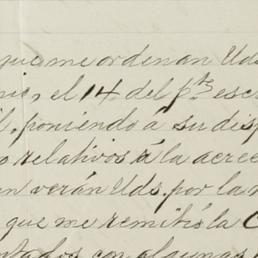 que me ordenan Uds
el 14 del pte esc
poniendo á su disp
relativos á la acree
verán Uds. por la
que me remitió la C
con algunas